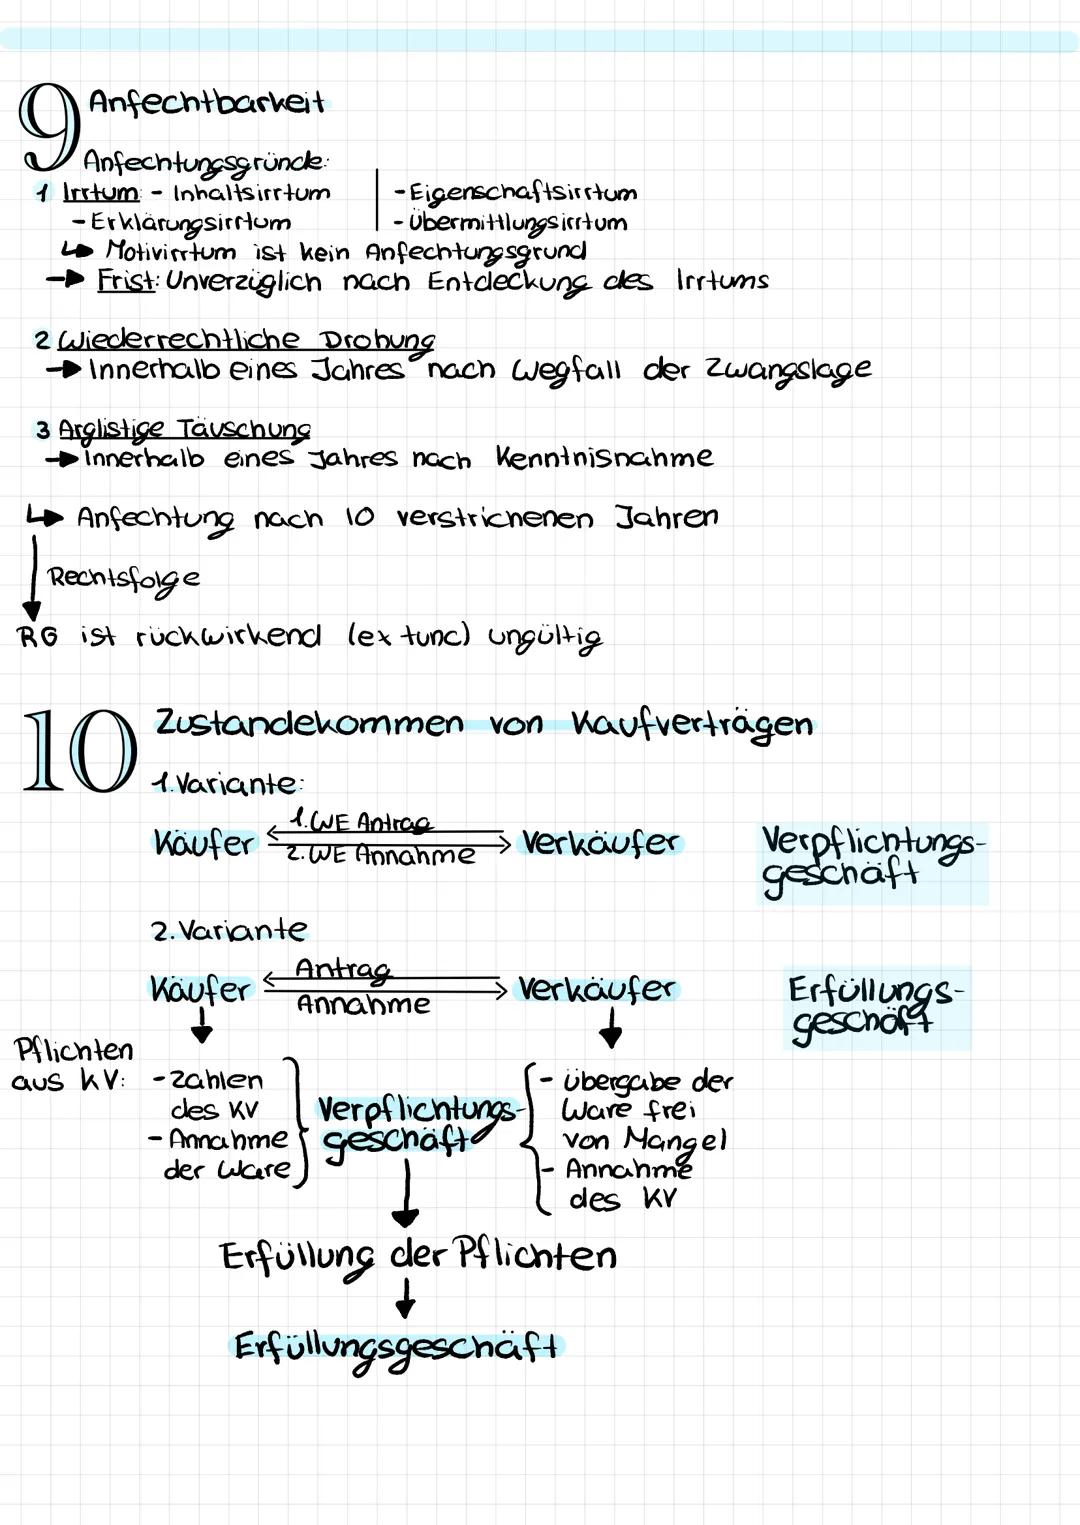 9 Anfechtbarkeit
Anfechtungsgründe:
1 Irrtum: - Inhaltsirrtum | - Eigenschaftsirrtum
- Erklärungsirrtum | - Übermittlungsirrtum
↳ Motivirrtum ist kein Anfechtungsgrund
→ Frist: Unverzüglich nach Entdeckung des Irrtums
2 Wiederrechtliche Drohung
→ Innerhalb eines Jahres nach Wegfall der Zwangslage
3 Arglistige Täuschung
→ Innerhalb eines Jahres nach Kenntnisnahme
↳ Anfechtung nach 10 verstrichenen Jahren
Rechtsfolge
RG ist rückwirkend (ex tunc) ungültig
10 Zustandekommen von Kaufverträgen
1. Variante:
1. WE Antrag
Käufer Verkäufer
2. WE Annahme
Verpflichtungs-
geschäft
2. Variante
Antrag
Käufer Verkäufer
Annahme
Erfüllungs-
geschäft
Pflichten
aus KV:
- Zahlen
des KV
- Annahme
der Ware
Verpflichtungs-
geschäft
- Übergabe der
Ware frei
von Mangel
- Annahme
des KV
Erfüllung der Pflichten
Erfüllungsgeschäft